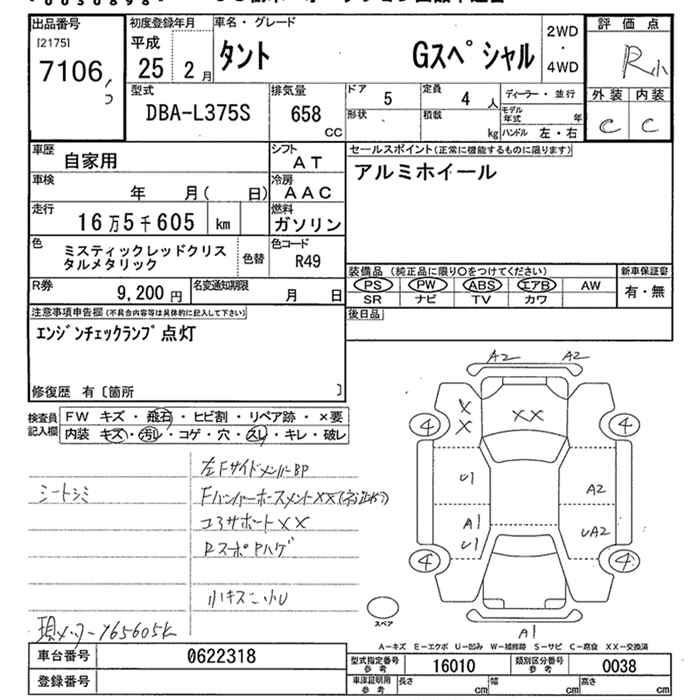 出品番号
[2175]
7106
初度登録年月
平成
25 2月
車名・グレード
タント Gスペシャル
2WD
・
4WD
評価点
R小
外装 内装
C C
型式
DBA-L375S
排気量
658
CC
ドア 5
形状
定員 4 人
積載 kg
ディーラー・並行
モデル年式 年
ハンドル 左・右
車歴 自家用
シフト AT
車検 年 月( 日)
冷房 AAC
走行 16万5千605 km
燃料 ガソリン
色 ミスティックレッドクリス
タルメタリック
色替
色コード R49
R券 9,200 円
名変通知期限 月 日
セールスポイント(正常に機能するものに限ります)
アルミホイール
装備品 (純正品に限り〇をつけてください)
PS PW ABS エアB AW
SR ナビ TV カワ
新車保証書
有・無
後日品
注意事項申告欄(不具合内容等は具体的に記入して下さい)
エンジンチェックランプ点灯
修復歴 有〔箇所 〕
検査員記入欄
FW キズ・飛石・ヒビ割・リペア跡・×要
内装 キズ・汚レ・コゲ・穴・スレ・キレ・破レ
左FサイドメンバーBP
シートシミ
コアサポートXX
小キズ 小U
現メーター165605K
A2 A2
X
X
XX
4 4
U1
A2
A1
U1
UA2
4 4
A1
スペア
A－キズ E－エクボ U－凹み W－補修跡 S－サビ C－腐食 XX－交換済
車台番号 0622318
登録番号
型式指定番号参考 16010
類別区分番号参考 0038
車庫証明用参考 長さ cm 幅 cm 高さ cm